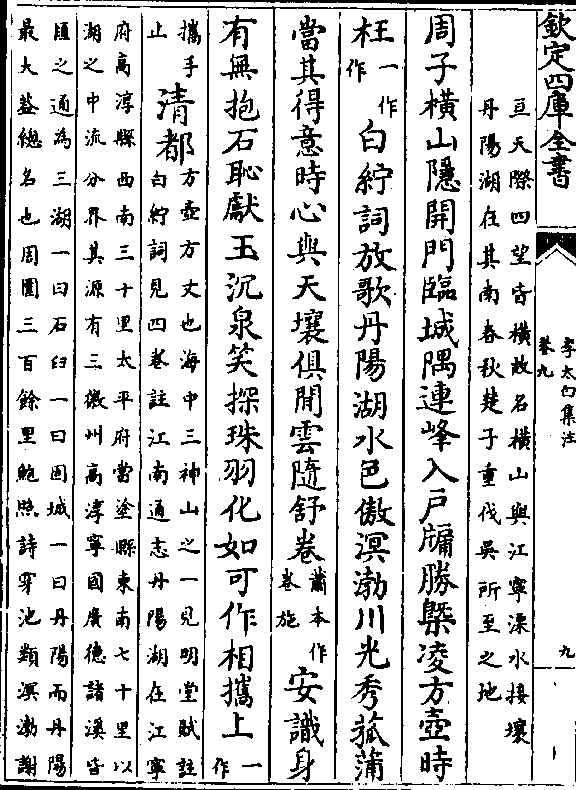 欽定四庫全書
李太白集注
卷九
九
亘天際四望皆橫故名橫山與江寧溧水接壤
丹陽湖在其南春秋楚子重伐吳所至之地
周子橫山隱開門臨城隅連峰入戶牖勝槩凌方壺時
枉一作作白紵詞放歌丹陽湖水色傲溟渤川光秀菰蒲
當其得意時心與天壤俱閒雲隨舒卷蕭本作卷施安識身
有無抱石恥獻玉沉泉笑探珠羽化如可作相攜上一作
攜手止清都方壺方丈也海中三神山之一見明堂賦註
白紵詞見四巻註江南通志丹陽湖在江寧
府高淳縣西南三十里太平府當塗縣東南七十里以
湖之中流分界其源有三徽州高淳寧國廣德諸溪皆
匯之通為三湖一曰石臼一曰固城一曰丹陽而丹陽
最大葢總名也周圍三百餘里鮑照詩穿池類溟渤謝